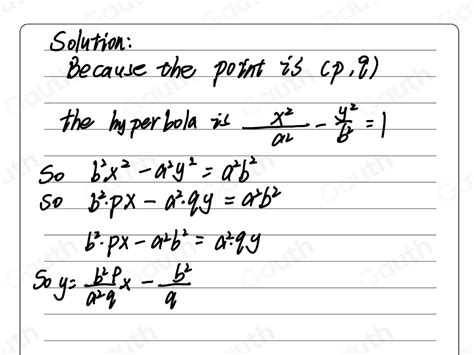 Solution:
Because the point is (p,q)
the hyperbola is x²/a² - y²/b² = 1
So b²x² - a²y² = a²b²
So b²·px - a²·qy = a²b²
b²·px - a²b² = a²·qy
So y = b²p/a²q x - b²/q